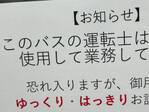 【お知らせ】
このバスの運転士は
使用して業務して
恐れ入りますが、御用
ゆっくり・はっきりお話